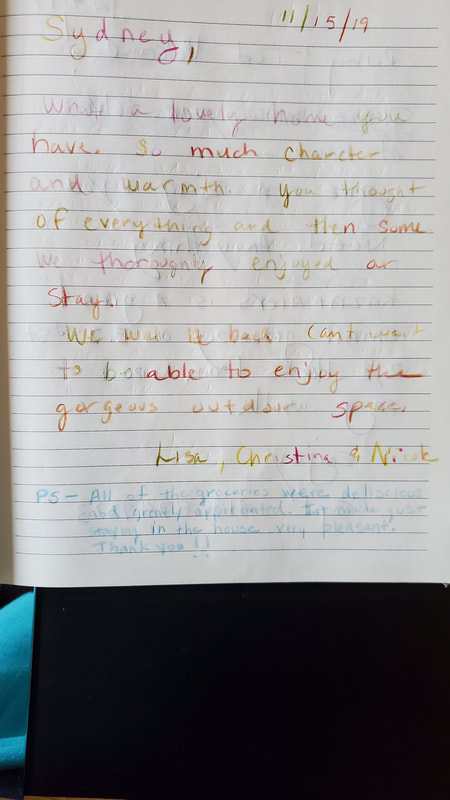 11/15/19
Sydney,
What a lovely home you
have. So much charcter
and warmth. You thought
of everything and then some
we thoroughly enjoyed our
stay.
We will be back. Cant wait
to be able to enjoy the
gorgeous outdoor space.
Lisa, Christina & Nicole
PS - All of the groceries were deliscious
and greatly appreciated. It made just
staying in the house very pleasant.
Thank you!!